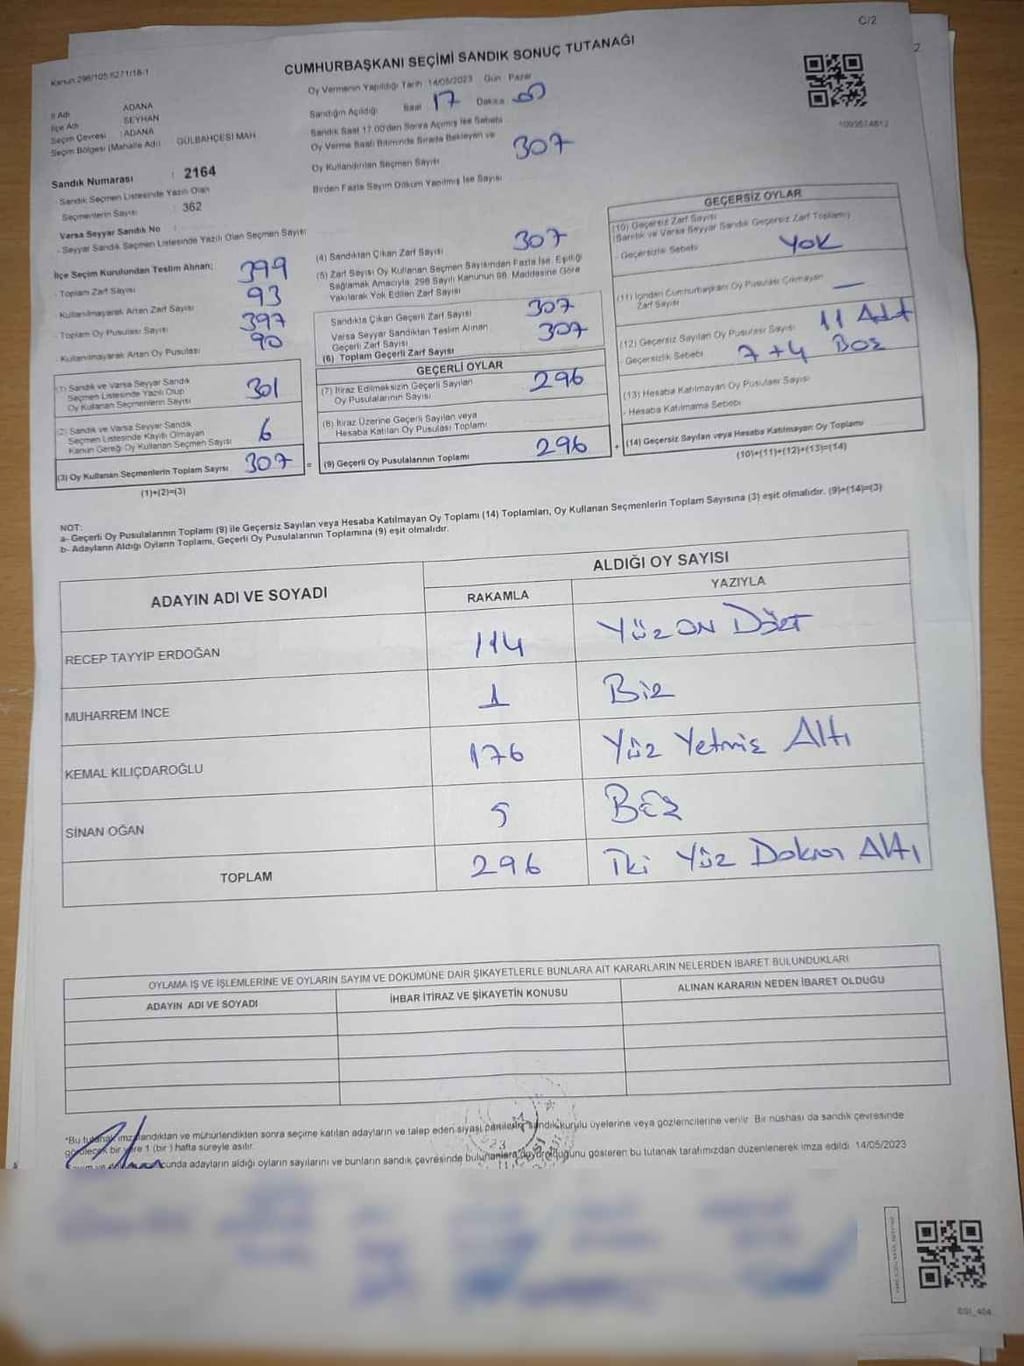 C/2
Kanun:298/105 6271/18-1
CUMHURBAŞKANI SEÇİMİ SANDIK SONUÇ TUTANAĞI
İl Adı ADANA
İlçe Adı SEYHAN
Seçim Çevresi : ADANA
Seçim Bölgesi (Mahalle Adı) GÜLBAHÇESİ MAH
Sandık Numarası : 2164
Sandık Seçmen Listesinde Yazılı Olan
Seçmenlerin Sayısı : 362
Varsa Seyyar Sandık No
- Seyyar Sandık Seçmen Listesinde Yazılı Olan Seçmen Sayısı
Oy Vermenin Yapıldığı Tarih 14/05/2023 Gün : Pazar
Sandığın Açıldığı Saat 17 Dakika
Sandık Saat 17:00'den Sonra Açılmış İse Sebebi
Oy Verme Saati Bitiminde Sırada Bekleyen ve
Oy Kullandırılan Seçmen Sayısı 307
Birden Fazla Sayım Döküm Yapılmış İse Sayısı
İlçe Seçim Kurulundan Teslim Alınan;
- Toplam Zarf Sayısı 399
- Kullanılmayarak Artan Zarf Sayısı 93
- Toplam Oy Pusulası Sayısı 397
- Kullanılmayarak Artan Oy Pusulası 90
(1) Sandık ve Varsa Seyyar Sandık
Seçmen Listesinde Yazılı Olup
Oy Kullanan Seçmenlerin Sayısı 301
(2) Sandık ve Varsa Seyyar Sandık
Seçmen Listesinde Kayıtlı Olmayan
Kanun Gereği Oy Kullanan Seçmen Sayısı 6
(3) Oy Kullanan Seçmenlerin Toplam Sayısı 307
(1)+(2)=(3)
(4) Sandıktan Çıkan Zarf Sayısı 307
(5) Zarf Sayısı Oy Kullanan Seçmen Sayısından Fazla İse, Eşitliği
Sağlamak Amacıyla, 298 Sayılı Kanunun 98. Maddesine Göre
Yakılarak Yok Edilen Zarf Sayısı
Sandıkta Çıkan Geçerli Zarf Sayısı 307
Varsa Seyyar Sandıktan Teslim Alınan
Geçerli Zarf Sayısı 307
(6) Toplam Geçerli Zarf Sayısı
GEÇERLİ OYLAR
(7) İtiraz Edilmeksizin Geçerli Sayılan
Oy Pusulalarının Sayısı 296
(8) İtiraz Üzerine Geçerli Sayılan veya
Hesaba Katılan Oy Pusulası Toplamı
= (9) Geçerli Oy Pusulalarının Toplamı 296 +
GEÇERSİZ OYLAR
(10) Geçersiz Zarf Sayısı
(Sandık ve Varsa Seyyar Sandık Geçersiz Zarf Toplamı)
- Geçersizlik Sebebi YOK
(11) İçinden Cumhurbaşkanı Oy Pusulası Çıkmayan
Zarf Sayısı —
(12) Geçersiz Sayılan Oy Pusulası Sayısı 11 Adet
Geçersizlik Sebebi 7+4 BOŞ
(13) Hesaba Katılmayan Oy Pusulası Sayısı
- Hesaba Katılmama Sebebi
(14) Geçersiz Sayılan veya Hesaba Katılmayan Oy Toplamı
(10)+(11)+(12)+(13)=(14)
NOT:
a- Geçerli Oy Pusulalarının Toplamı (9) ile Geçersiz Sayılan veya Hesaba Katılmayan Oy Toplamı (14) Toplamları, Oy Kullanan Seçmenlerin Toplam Sayısına (3) eşit olmalıdır. (9)+(14)=(3)
b- Adayların Aldığı Oyların Toplamı, Geçerli Oy Pusulalarının Toplamına (9) eşit olmalıdır.
ADAYIN ADI VE SOYADI
ALDIĞI OY SAYISI
RAKAMLA YAZIYLA
RECEP TAYYİP ERDOĞAN 114 Yüz on Dört
MUHARREM İNCE 1 Bir
KEMAL KILIÇDAROĞLU 176 Yüz Yetmiş Altı
SİNAN OĞAN 5 BEŞ
TOPLAM 296 İki Yüz Doksan Altı
OYLAMA İŞ VE İŞLEMLERİNE VE OYLARIN SAYIM VE DÖKÜMÜNE DAİR ŞİKAYETLERLE BUNLARA AİT KARARLARIN NELERDEN İBARET BULUNDUKLARI
ADAYIN ADI VE SOYADI İHBAR İTİRAZ VE ŞİKAYETİN KONUSU ALINAN KARARIN NEDEN İBARET OLDUĞU
*Bu tutanak imzalandıktan ve mühürlendikten sonra seçime katılan adayların ve talep eden siyasi partilerin sandık kurulu üyelerine veya gözlemcilerine verilir. Bir nüshası da sandık çevresinde
görülecek bir yere 1 (bir) hafta süreyle asılır.
adayların aldığı oyların sayılarını ve bunların sandık çevresinde gösteren bu tutanak tarafımızdan düzenlenerek imza edildi. 14/05/2023